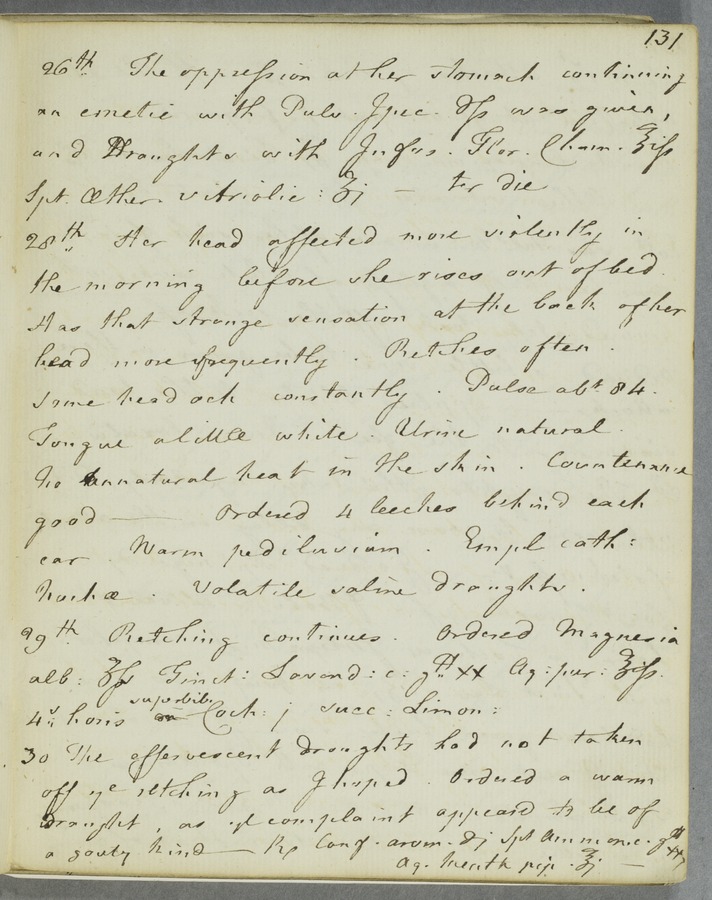 131
26th The oppression at her stomach continuing
an emetic with Pulv. Ipec. ℈ſs was given,
and Draughts with Infus. Flor. Cham. ℥iſs
Spt. Æther. vitriolic: ʒj — ter die
28th Her head affected more violently in
the morning before she rises out of bed.
Has that strange sensation at the back of her
head more frequently. Retches often.
some head ach constantly. Pulse abt. 84.
Tongue a little white. Urine natural.
No unnatural heat in the skin. Countenance
good — Ordered 4 leeches behind each
ear. Warm pediluvium. Empl. cath:
Nuchæ. Volatile saline draughts.
29th Retching continues. Ordered Magnesia
alb: ʒſs Tinct: Lavend: c: gtt xx Aq: pur: ℥iſs.
4s. horis superbib. Coch: j succ: Limon:
30 The effervescent draughts had not taken
off ye retching as I hoped. Ordered a warm
draught, as ye complaint appeard to be of
a gouty kind — Rx Conf. arom. ℈j Spt Ammon. c. gtt xx
Aq. Menth pip. ℥j —